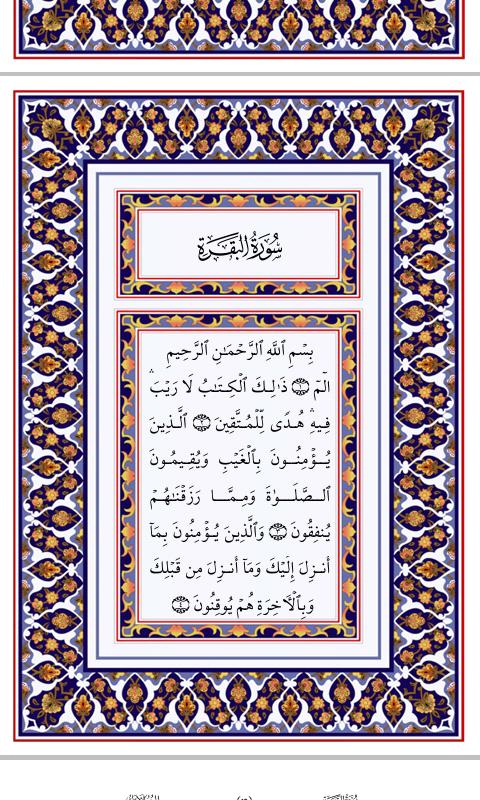 سُورَةُ الْبَقَرَةِ
بِسْمِ ٱللَّهِ ٱلرَّحْمَٰنِ ٱلرَّحِيمِ
الٓمٓ ۝١ ذَٰلِكَ ٱلْكِتَٰبُ لَا رَيْبَ ۛ
فِيهِ ۛ هُدًى لِّلْمُتَّقِينَ ۝٢ ٱلَّذِينَ
يُؤْمِنُونَ بِٱلْغَيْبِ وَيُقِيمُونَ
ٱلصَّلَوٰةَ وَمِمَّا رَزَقْنَٰهُمْ
يُنفِقُونَ ۝٣ وَٱلَّذِينَ يُؤْمِنُونَ بِمَآ
أُنزِلَ إِلَيْكَ وَمَآ أُنزِلَ مِن قَبْلِكَ
وَبِٱلْأَخِرَةِ هُمْ يُوقِنُونَ ۝٤